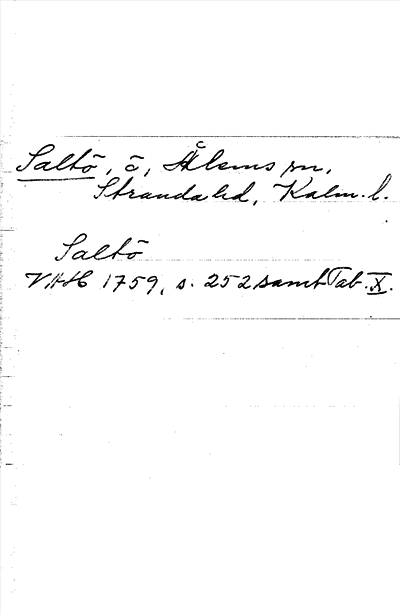 Saltö, ö, Ålems sn,
Stranda hd, Kalm. l.
Saltö
VAH 1759, s. 252 samt Tab. X.